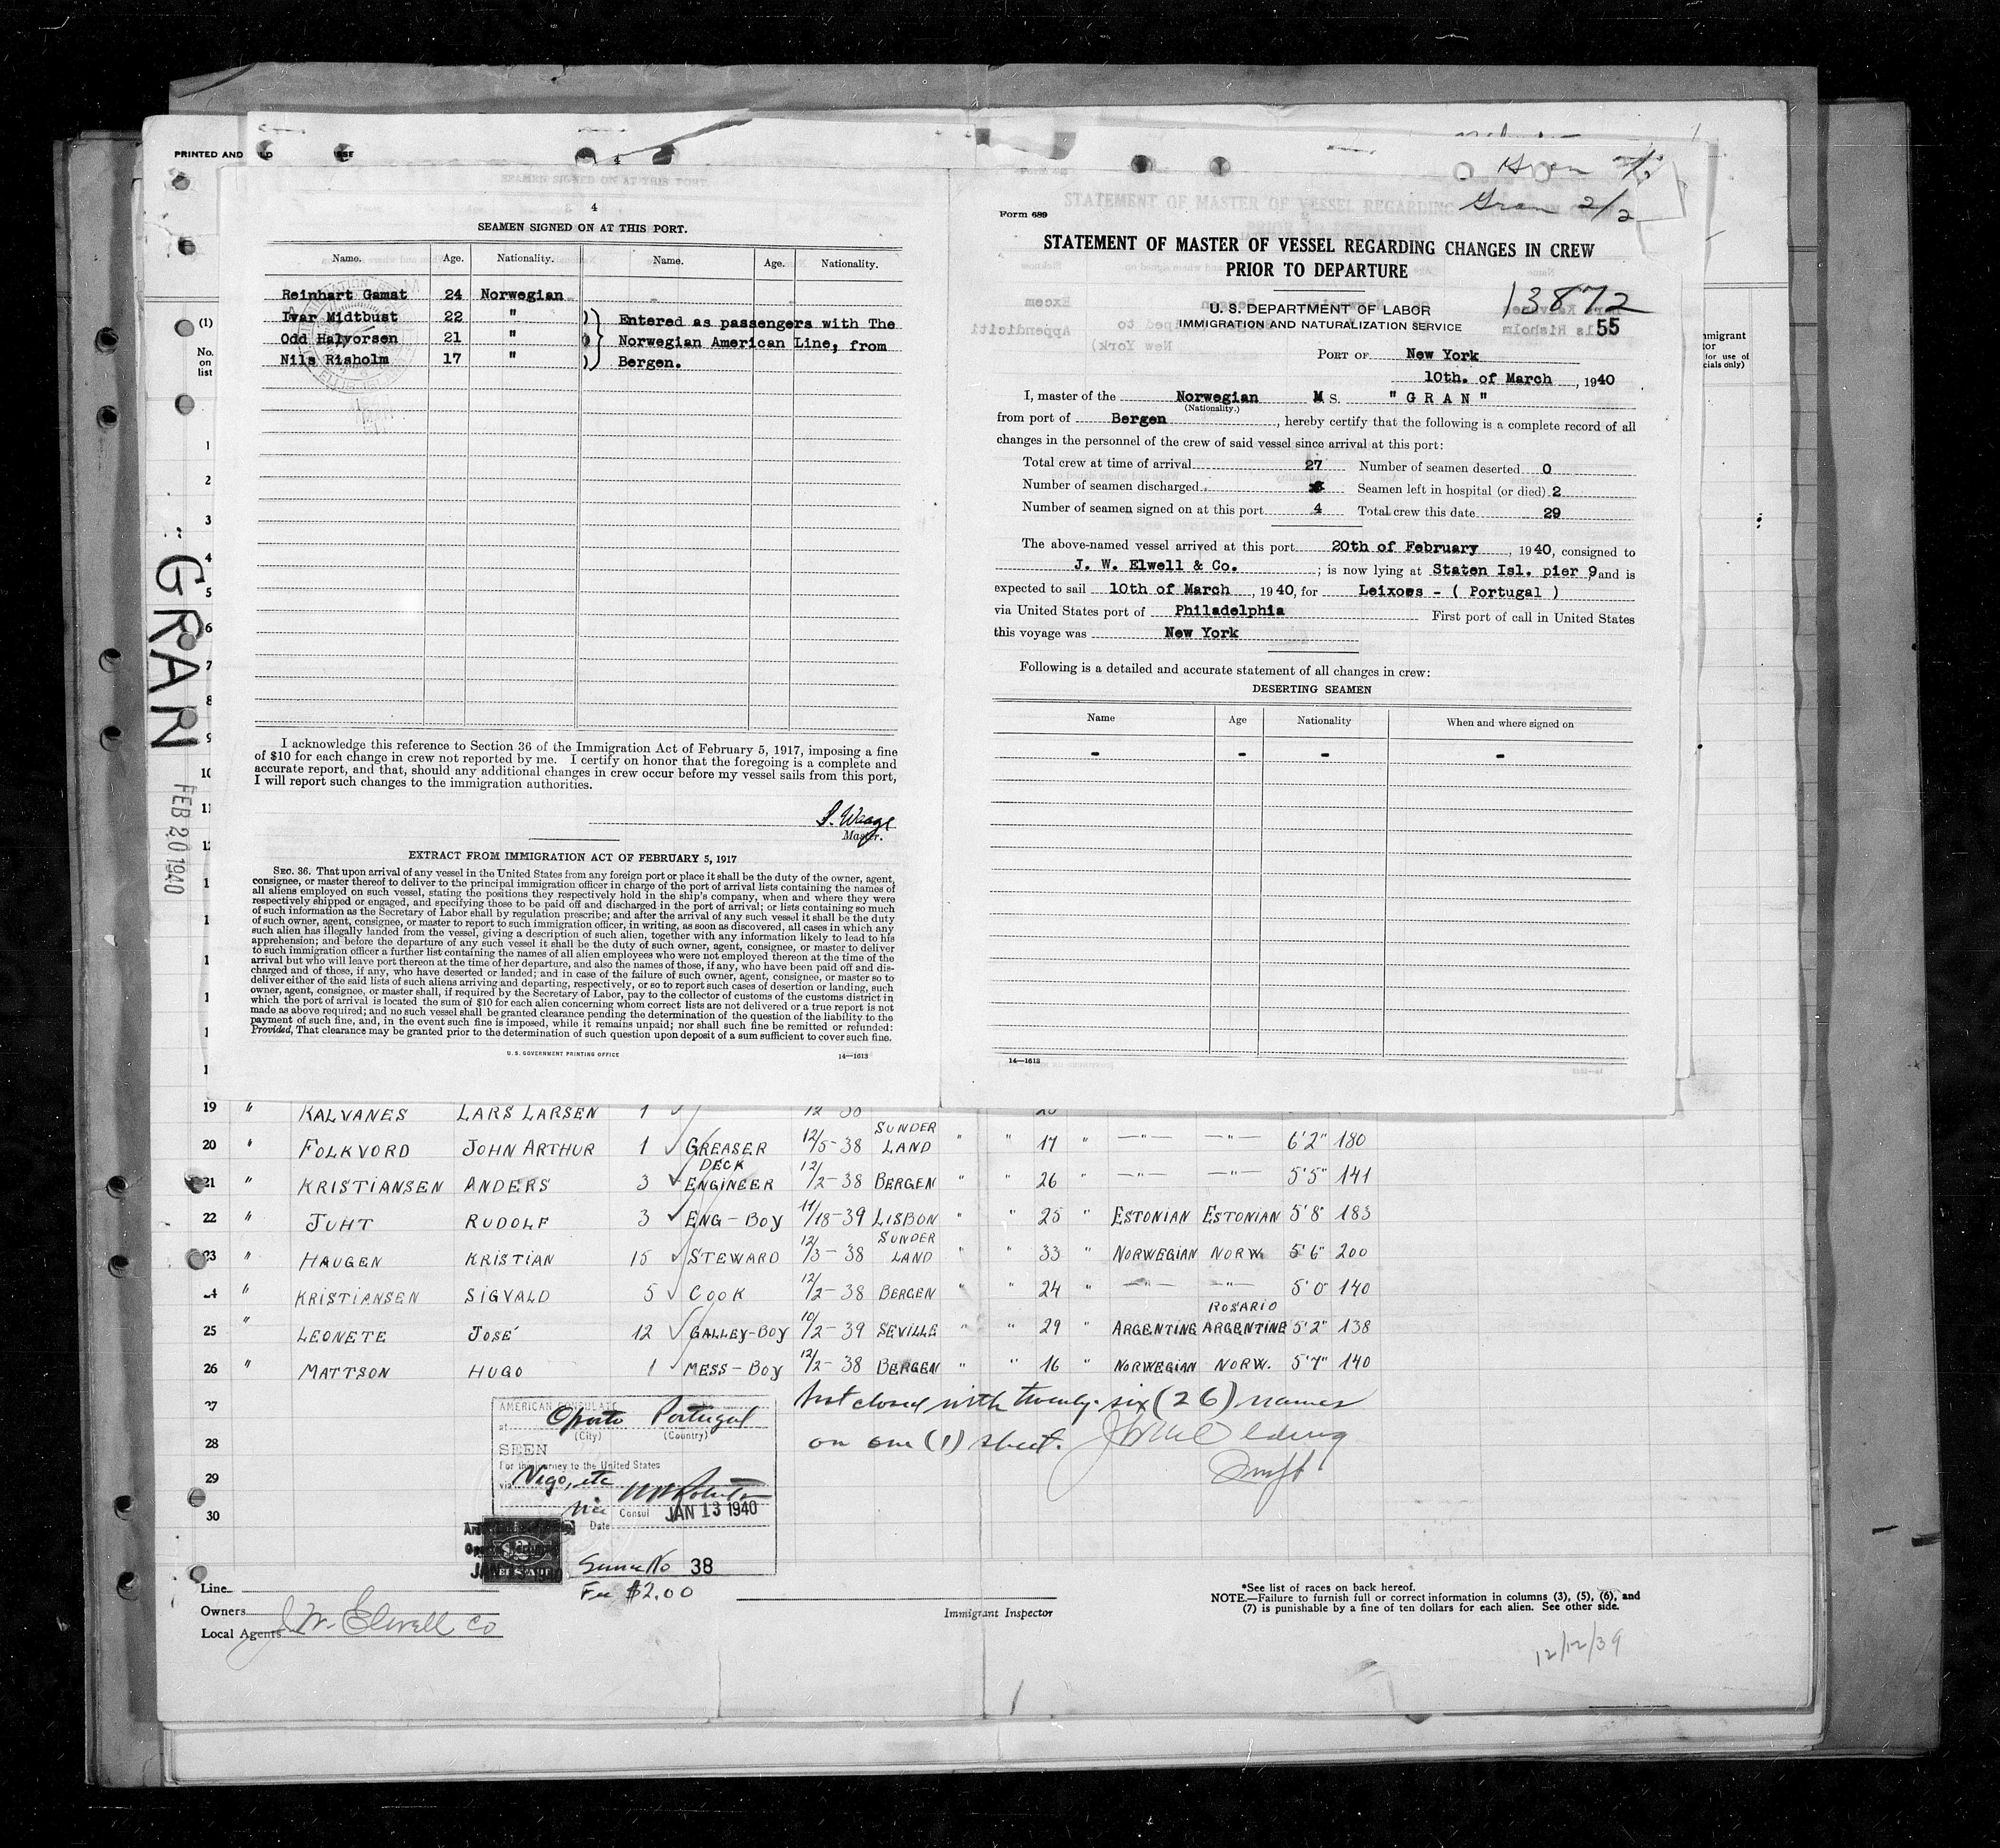 PRINTED AND
4
SEAMEN SIGNED ON AT THIS PORT.
Name. Age. Nationality. Name. Age. Nationality.
Reinhart Gamst 24 Norwegian
Ivar Midtbust 22 " ) Entered as passengers with The
Odd Halvorsen 21 " ) Norwegian American Line, from
Nils Risholm 17 " ) Bergen.
I acknowledge this reference to Section 36 of the Immigration Act of February 5, 1917, imposing a fine
of $10 for each change in crew not reported by me. I certify on honor that the foregoing is a complete and
accurate report, and that, should any additional changes in crew occur before my vessel sails from this port,
I will report such changes to the immigration authorities.
Master.
EXTRACT FROM IMMIGRATION ACT OF FEBRUARY 5, 1917
SEC. 36. That upon arrival of any vessel in the United States from any foreign port or place it shall be the duty of the owner, agent,
consignee, or master thereof to deliver to the principal immigration officer in charge of the port of arrival lists containing the names of
all aliens employed on such vessel, stating the positions they respectively hold in the ship's company, when and where they were
respectively shipped or engaged, and specifying those to be paid off and discharged in the port of arrival; or lists containing so much
of such information as the Secretary of Labor shall by regulation prescribe; and after the arrival of any such vessel it shall be the duty
of such owner, agent, consignee, or master to report to such immigration officer, in writing, as soon as discovered, all cases in which any
such alien has illegally landed from the vessel, giving a description of such alien, together with any information likely to lead to his
apprehension; and before the departure of any such vessel it shall be the duty of such owner, agent, consignee, or master to deliver
to such immigration officer a further list containing the names of all alien employees who were not employed thereon at the time of the
arrival but who will leave port thereon at the time of her departure, and also the names of those, if any, who have been paid off and dis-
charged and of those, if any, who have deserted or landed; and in case of the failure of such owner, agent, consignee, or master so to
deliver either of the said lists of such aliens arriving and departing, respectively, or so to report such cases of desertion or landing, such
owner, agent, consignee, or master shall, if required by the Secretary of Labor, pay to the collector of customs of the customs district in
which the port of arrival is located the sum of $10 for each alien concerning whom correct lists are not delivered or a true report is not
made as above required; and no such vessel shall be granted clearance pending the determination of the question of the liability to the
payment of such fine, and, in the event such fine is imposed, while it remains unpaid; nor shall such fine be remitted or refunded:
Provided, That clearance may be granted prior to the determination of such question upon deposit of a sum sufficient to cover such fine.
U. S. GOVERNMENT PRINTING OFFICE 14—1613
Gran 2/2
Form 689
STATEMENT OF MASTER OF VESSEL REGARDING CHANGES IN CREW
PRIOR TO DEPARTURE
13872
U. S. DEPARTMENT OF LABOR
55
IMMIGRATION AND NATURALIZATION SERVICE
PORT OF New York
10th. of March, 1940
I, master of the Norwegian M S. " G R A N "
(Nationality.)
from port of Bergen, hereby certify that the following is a complete record of all
changes in the personnel of the crew of said vessel since arrival at this port:
Total crew at time of arrival 27 Number of seamen deserted 0
Number of seamen discharged Seamen left in hospital (or died) 2
Number of seamen signed on at this port 4 Total crew this date 29
The above-named vessel arrived at this port 20th of February, 1940, consigned to
J. W. Elwell & Co.; is now lying at Staten Isl. pier 9 and is
expected to sail 10th of March, 1940, for Leixoes - ( Portugal )
via United States port of Philadelphia First port of call in United States
this voyage was New York
Following is a detailed and accurate statement of all changes in crew:
DESERTING SEAMEN
Name Age Nationality When and where signed on
- - - -
14—1613
(1)
No.
on
list
1
2
3
4
5
6
7
8
9
"GRAN
FEB 20 1940
19 " KALVANES LARS LARSEN 1
20 " FOLKVORD JOHN ARTHUR 1 GREASER 12/5-38 SUNDERLAND " " 17 " —"— —"— 6'2" 180
21 " KRISTIANSEN ANDERS 3 DECK ENGINEER 12/2-38 BERGEN " " 26 " —"— —"— 5'5" 141
22 " JUHT RUDOLF 3 ENG-BOY 11/18-39 LISBON " " 25 " ESTONIAN ESTONIAN 5'8" 183
23 " HAUGEN KRISTIAN 15 STEWARD 12/3-38 SUNDERLAND " " 33 " NORWEGIAN NORW. 5'6" 200
24 " KRISTIANSEN SIGVALD 5 COOK 12/2-38 BERGEN " " 24 " —"— —"— 5'0" 140
25 " LEONETE JOSÉ 12 GALLEY-BOY 10/2-39 SEVILLE " " 29 " ARGENTINE ROSARIO ARGENTINE 5'2" 138
26 " MATTSON HUGO 1 MESS-BOY 12/2-38 BERGEN " " 16 " NORWEGIAN NORW. 5'7" 140
27
28
29
30
closed with twenty-six (26) names
on one (1) sheet.
AMERICAN CONSULATE
at Oporto Portugal
(City) (Country)
SEEN
For the journey to the United States
via Vigo, etc
Vice Consul JAN 13 1940
Date
Service No 38
Fee $2.00
Line
Owners
Local Agents J W. Elwell Co
Immigrant Inspector
*See list of races on back hereof.
NOTE.—Failure to furnish full or correct information in columns (3), (5), (6), and
(7) is punishable by a fine of ten dollars for each alien. See other side.
12/12/39